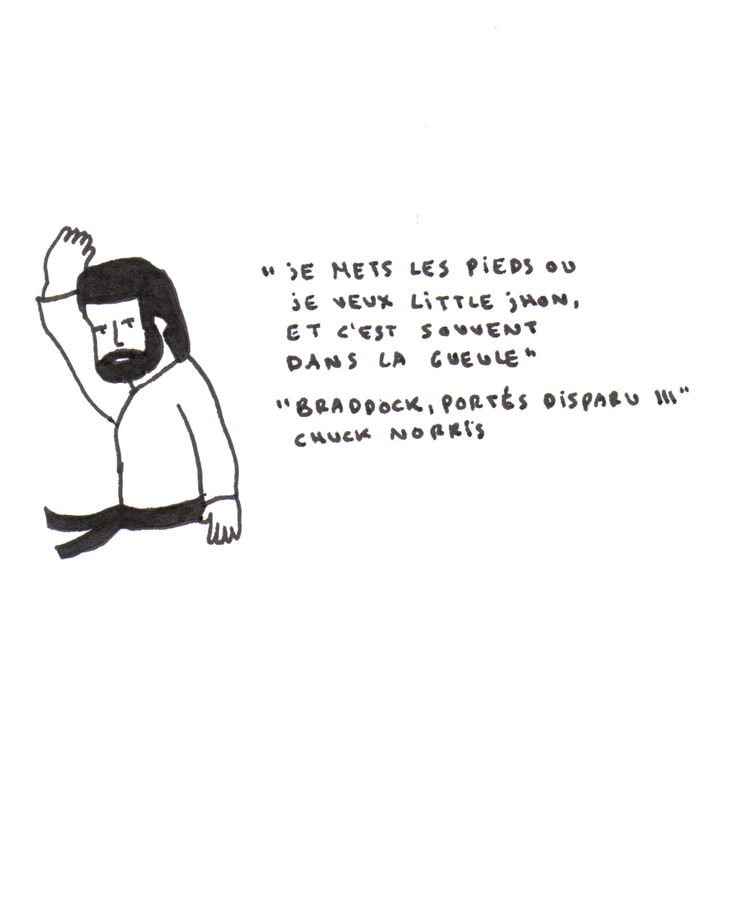 "JE METS LES PIEDS OU
JE VEUX LITTLE JHON,
ET C'EST SOUVENT
DANS LA GUEULE"
"BRADDOCK, PORTÉS DISPARU III"
CHUCK NORRIS